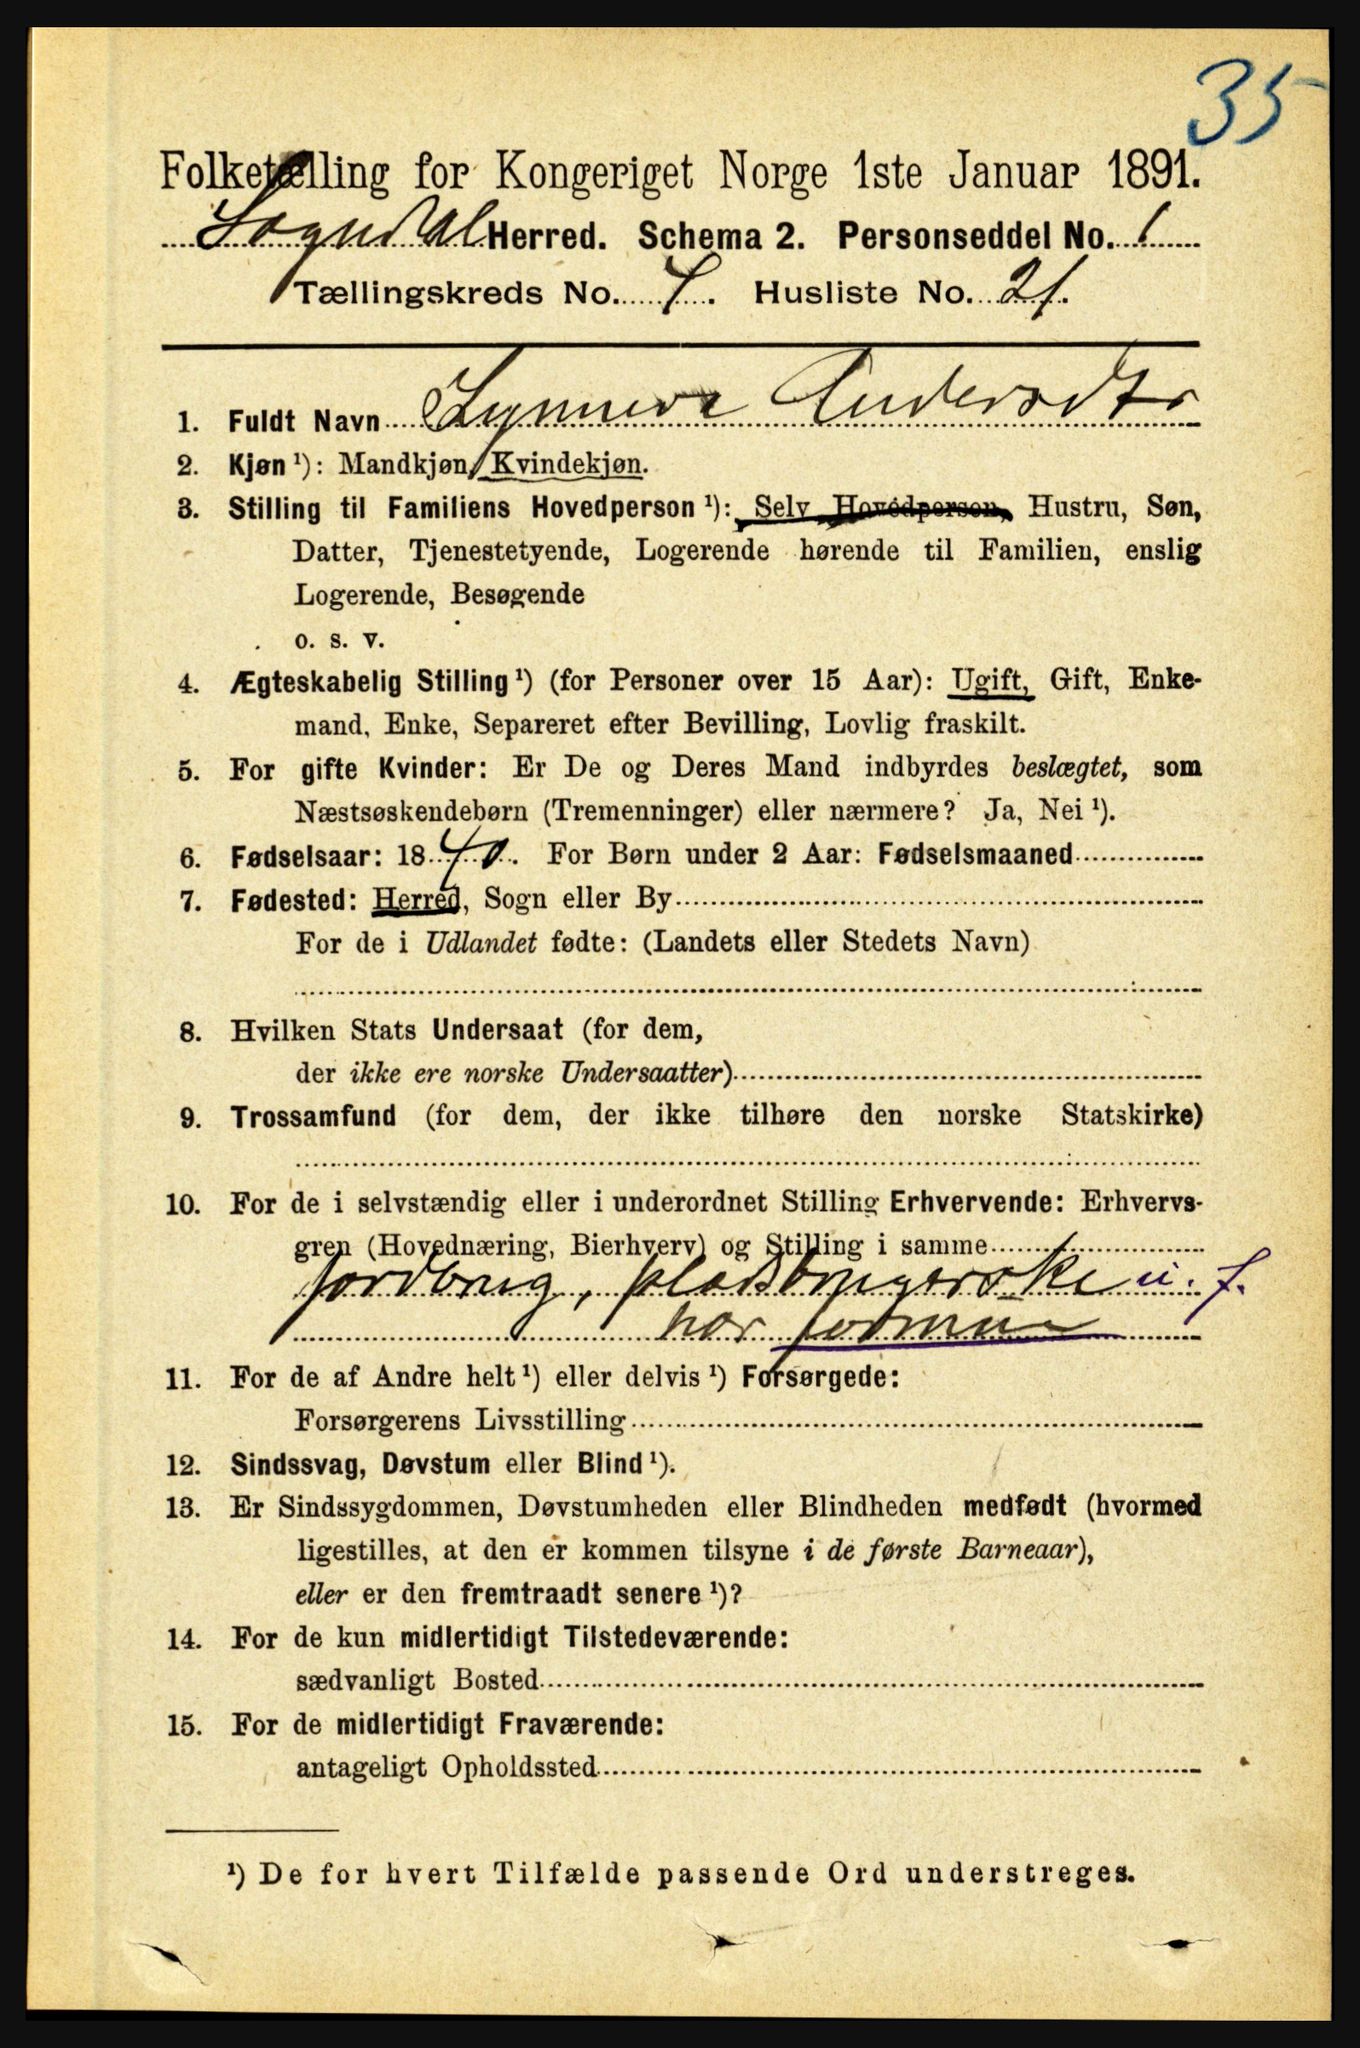 35
Folketælling for Kongeriget Norge 1ste Januar 1891.
Sogndal Herred. Schema 2. Personseddel No. 1
Tællingskreds No. 7. Husliste No. 21.
1. Fuldt Navn Synneva Andersdtr
2. Kjøn ¹): Mandkjøn, Kvindekjøn.
3. Stilling til Familiens Hovedperson ¹): Selv Hovedperson, Hustru, Søn,
Datter, Tjenestetyende, Logerende hørende til Familien, enslig
Logerende, Besøgende
o. s. v.
4. Ægteskabelig Stilling ¹) (for Personer over 15 Aar): Ugift, Gift, Enke-
mand, Enke, Separeret efter Bevilling, Lovlig fraskilt.
5. For gifte Kvinder: Er De og Deres Mand indbyrdes beslægtet, som
Næstsøskendebørn (Tremenninger) eller nærmere? Ja, Nei ¹).
6. Fødselsaar: 1840. For Børn under 2 Aar: Fødselsmaaned
7. Fødested: Herred, Sogn eller By
For de i Udlandet fødte: (Landets eller Stedets Navn)
8. Hvilken Stats Undersaat (for dem,
der ikke ere norske Undersaatter)
9. Trossamfund (for dem, der ikke tilhøre den norske Statskirke)
10. For de i selvstændig eller i underordnet Stilling Erhvervende: Erhvervs-
gren (Hovednæring, Bierhverv) og Stilling i samme
jordbrug, pladsbrugerske u. f.
har formue
11. For de af Andre helt ¹) eller delvis ¹) Forsørgede:
Forsørgerens Livsstilling
12. Sindssvag, Døvstum eller Blind ¹).
13. Er Sindssygdommen, Døvstumheden eller Blindheden medfødt (hvormed
ligestilles, at den er kommen tilsyne i de første Barneaar),
eller er den fremtraadt senere ¹)?
14. For de kun midlertidigt Tilstedeværende:
sædvanligt Bosted
15. For de midlertidigt Fraværende:
antageligt Opholdssted
¹) De for hvert Tilfælde passende Ord understreges.